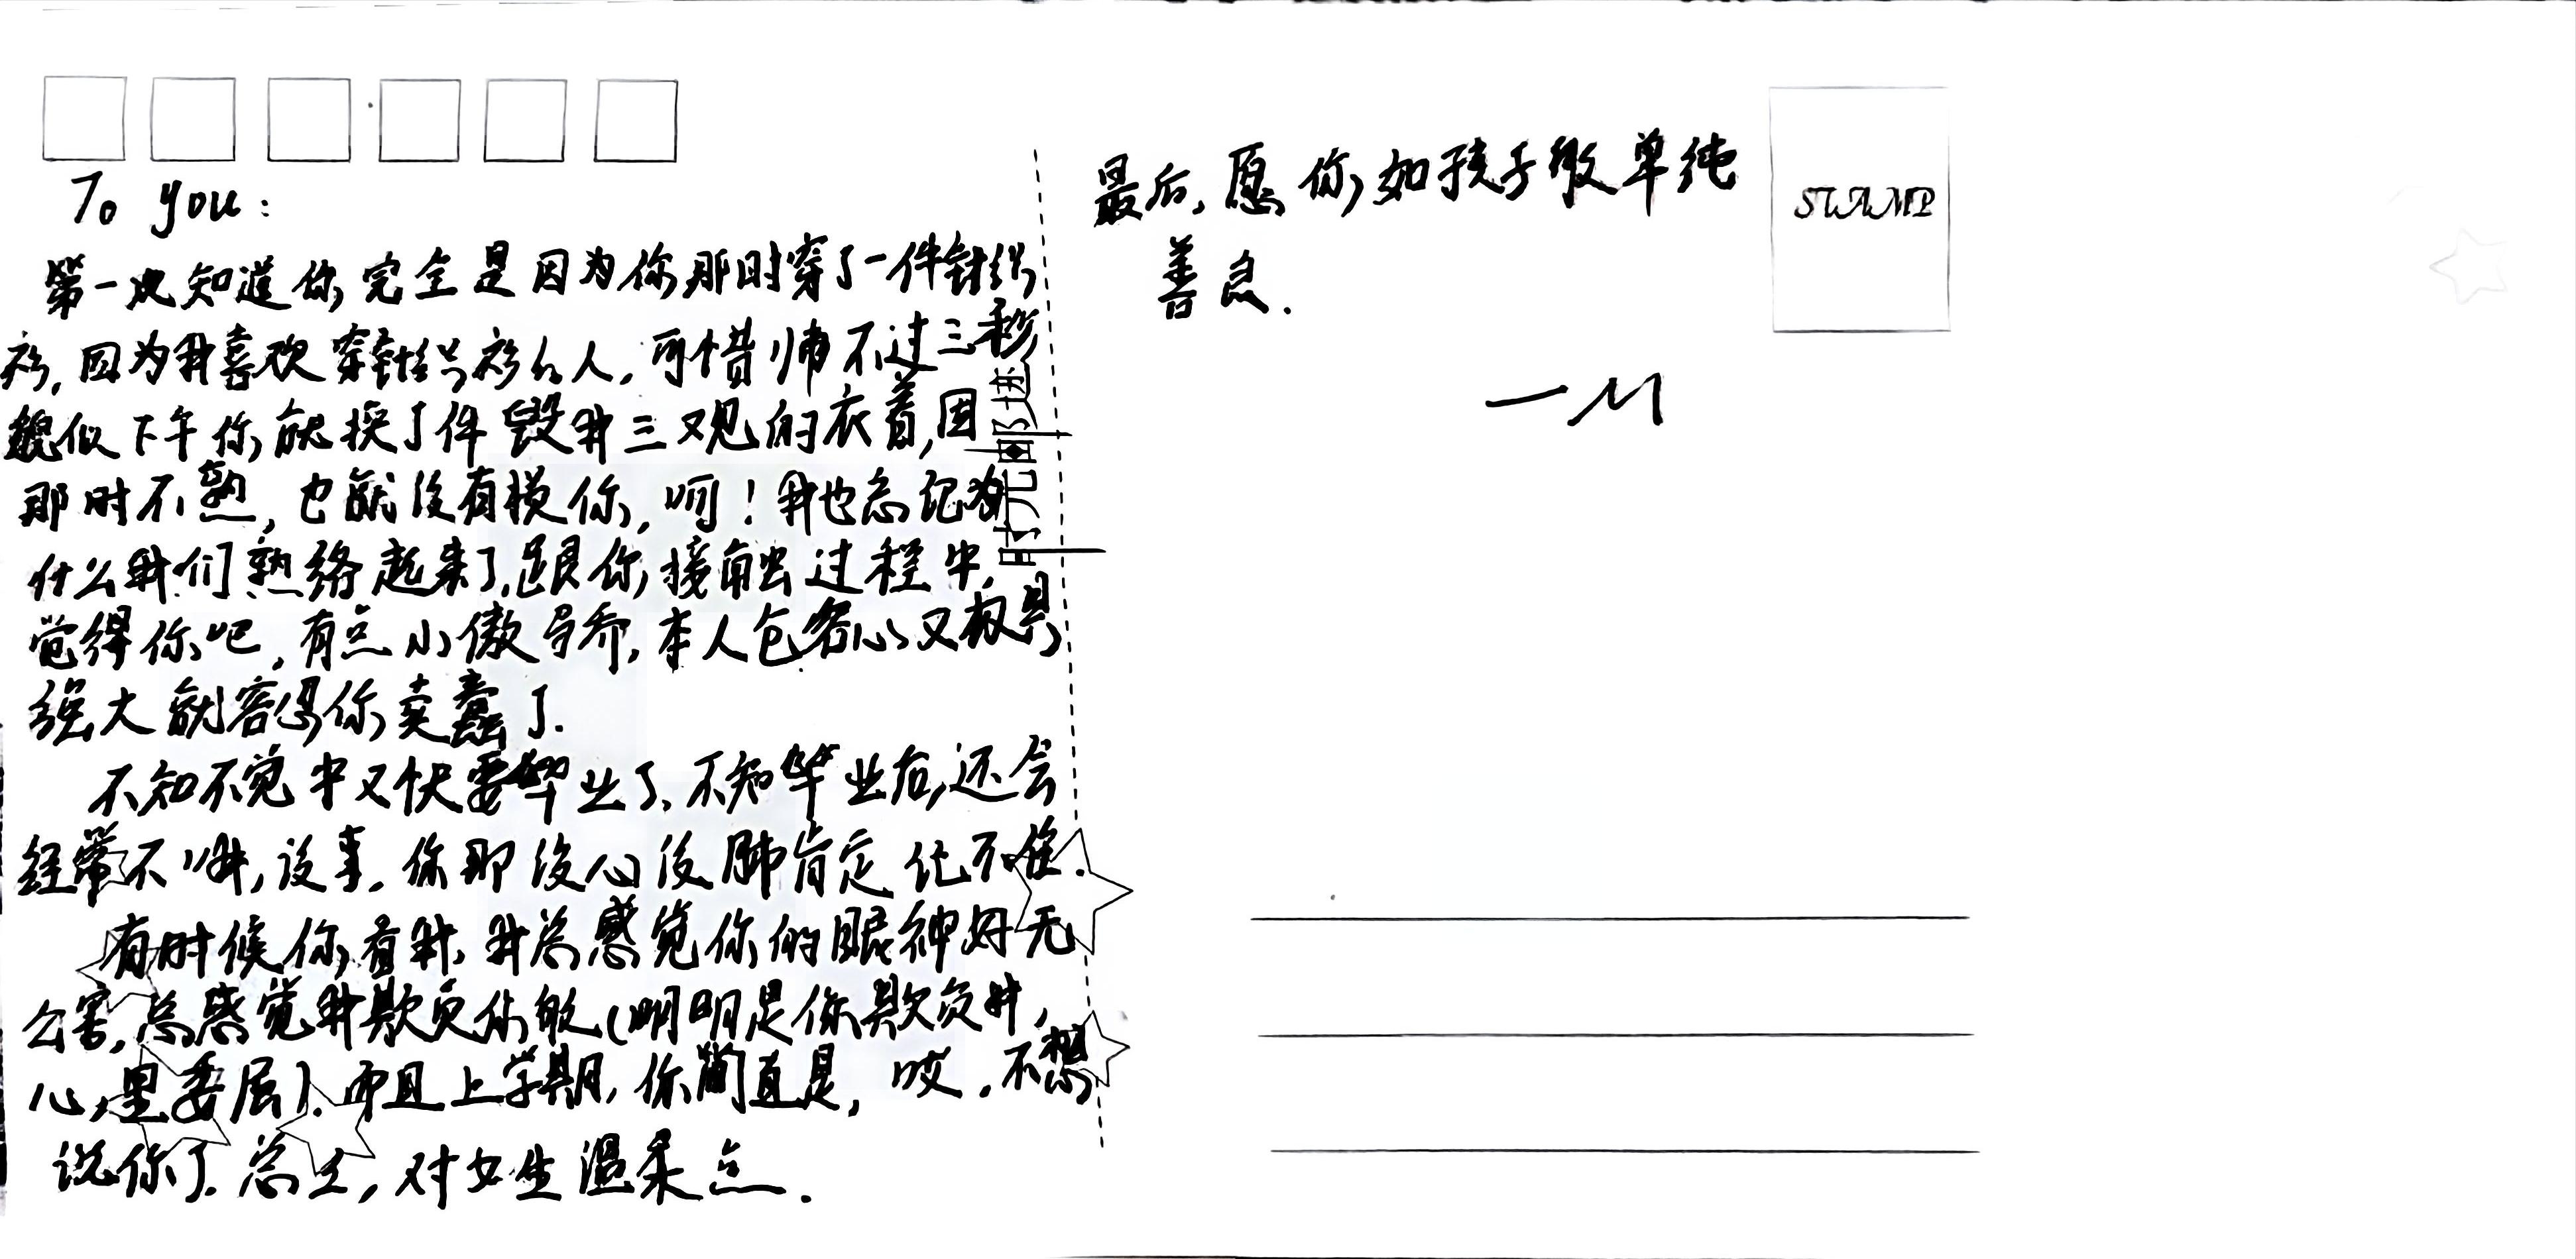 To you:
第一次知道你,完全是因为你那时穿了一件针织
衫,因为我喜欢穿针织衫的人,可惜帅不过三秒,
貌似下午你就换了件毁我三观的衣着,因
那时不熟,也就没有损你,呵!我也忘记为
什么我们熟络起来了,跟你接触过程中,
觉得你吧,有点小傲娇,本人包容心又极其
强大就容忍你卖蠢了.
不知不觉中又快要毕业了,不知毕业后,还会
经常不,没事,你那没心没肺肯定记不住.
有时候你看我,我总感觉你的眼神好无
公害,总感觉我欺负你般(明明是你欺负我,
心里委屈).而且上学期,你简直是,哎,不想
说你了.总之,对女生温柔点.
时光邮递
最后,愿你,如孩子般单纯
善良.
—M
STAMP